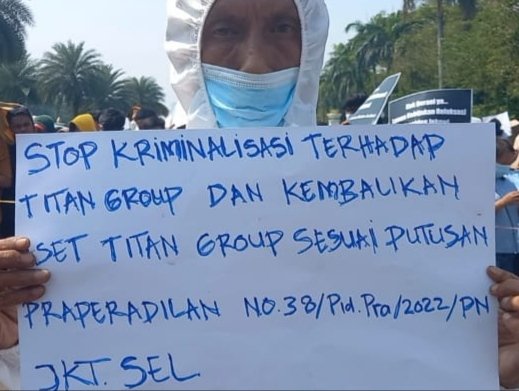 STOP KRIMINALISASI TERHADAP
TITAN GROUP DAN KEMBALIKAN
SET TITAN GROUP SESUAI PUTUSAN
PRAPERADILAN NO.38/Pid.Pra/2022/PN
JKT. SEL